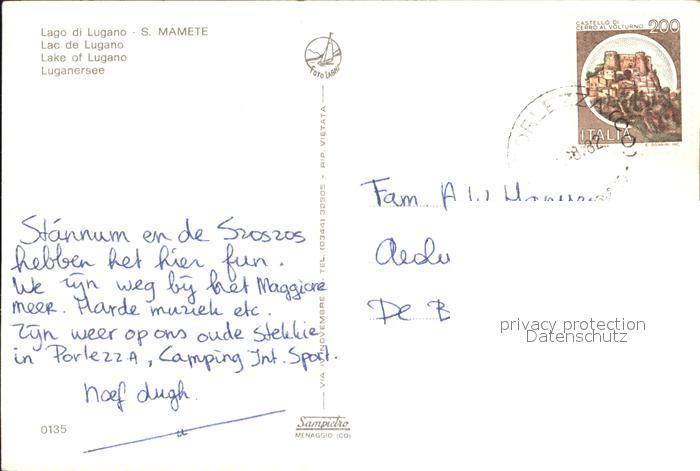 Lago di Lugano - S. MAMETE
Lac de Lugano
Lake of Lugano
Luganersee
FOTO LABOR
CASTELLO DI
CERRO AL VOLTURNO 200
ITALIA
VIA IV NOVEMBRE TEL. (0344) 30305 - RIP. VIETATA
Fam A W
De B
privacy protection
Datenschutz
Stánnum en de Szoszos
hebben het hier fun.
We zijn weg bij het Maggiore
meer. Harde muziek etc.
Zijn weer op ons oude stekkie
in Porlezza, Camping Int. Sport.
0135
Sampietro
MENAGGIO (CO)